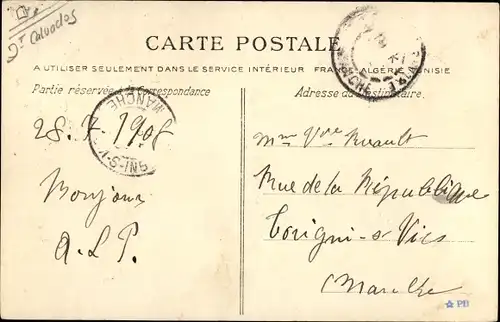 Dt Calvados
CARTE POSTALE
A UTILISER SEULEMENT DANS LE SERVICE INTÉRIEUR FRANCE ALGÉRIE TUNISIE
Partie réservée à la Correspondance
Adresse du Destinataire.
MANCHE
MANCHE
28. 7. 1908
Bonjour
A.L.P.
Mme Vve Ruault
Rue de la République
Torigni-s-Vire
Manche
PB